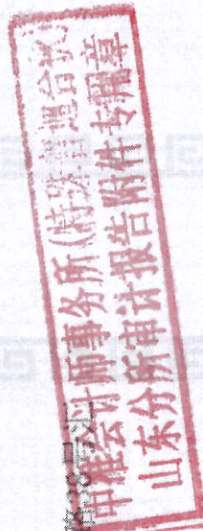 中准会计师事务所(特殊普通合伙)
山东分所审计报告附件专用章
路38号汇